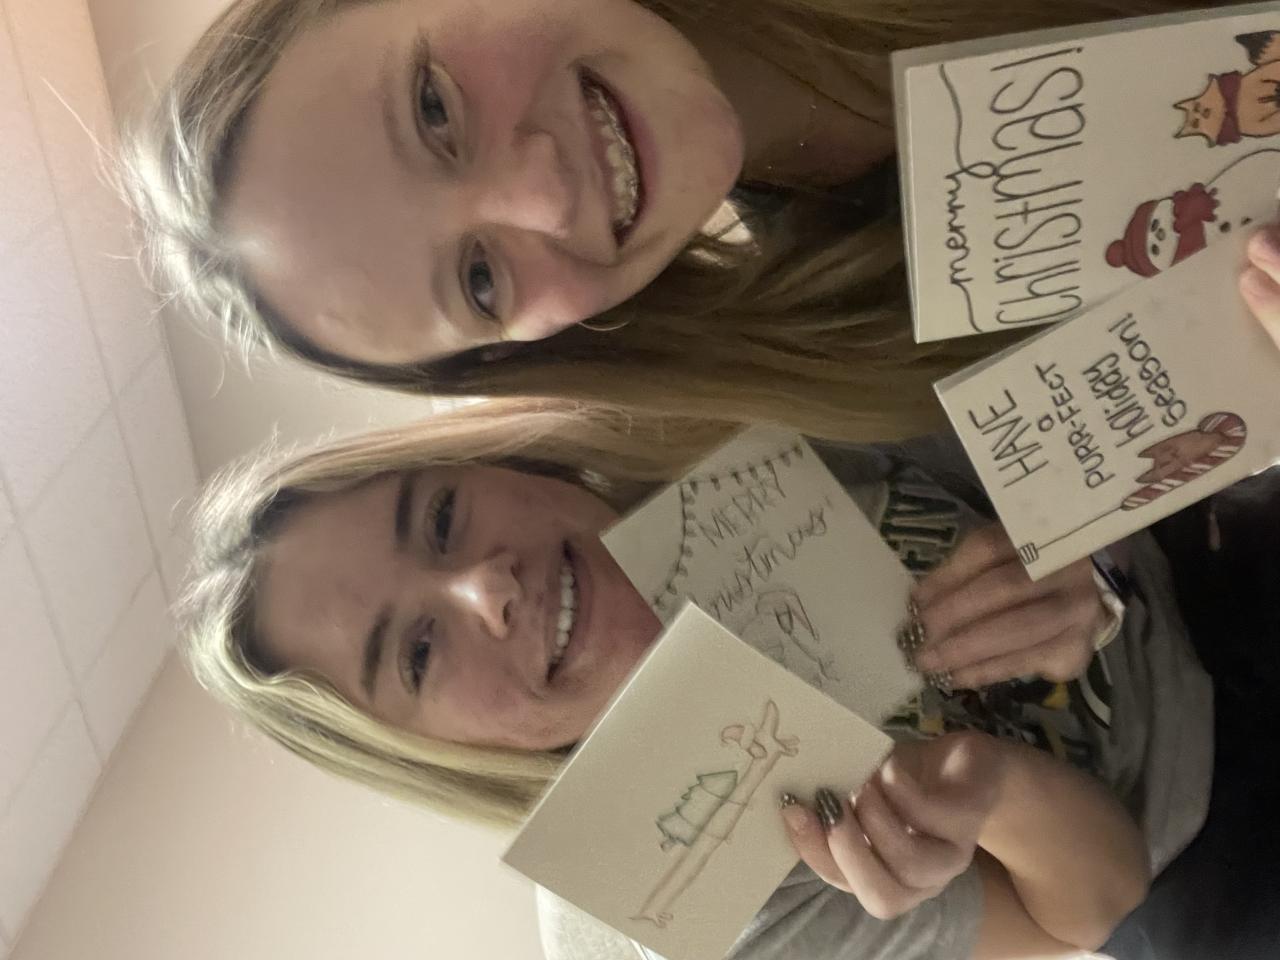 merry
Christmas!
HAVE
a
PURR-FECT
holiday
Season!
MERRY
christmas